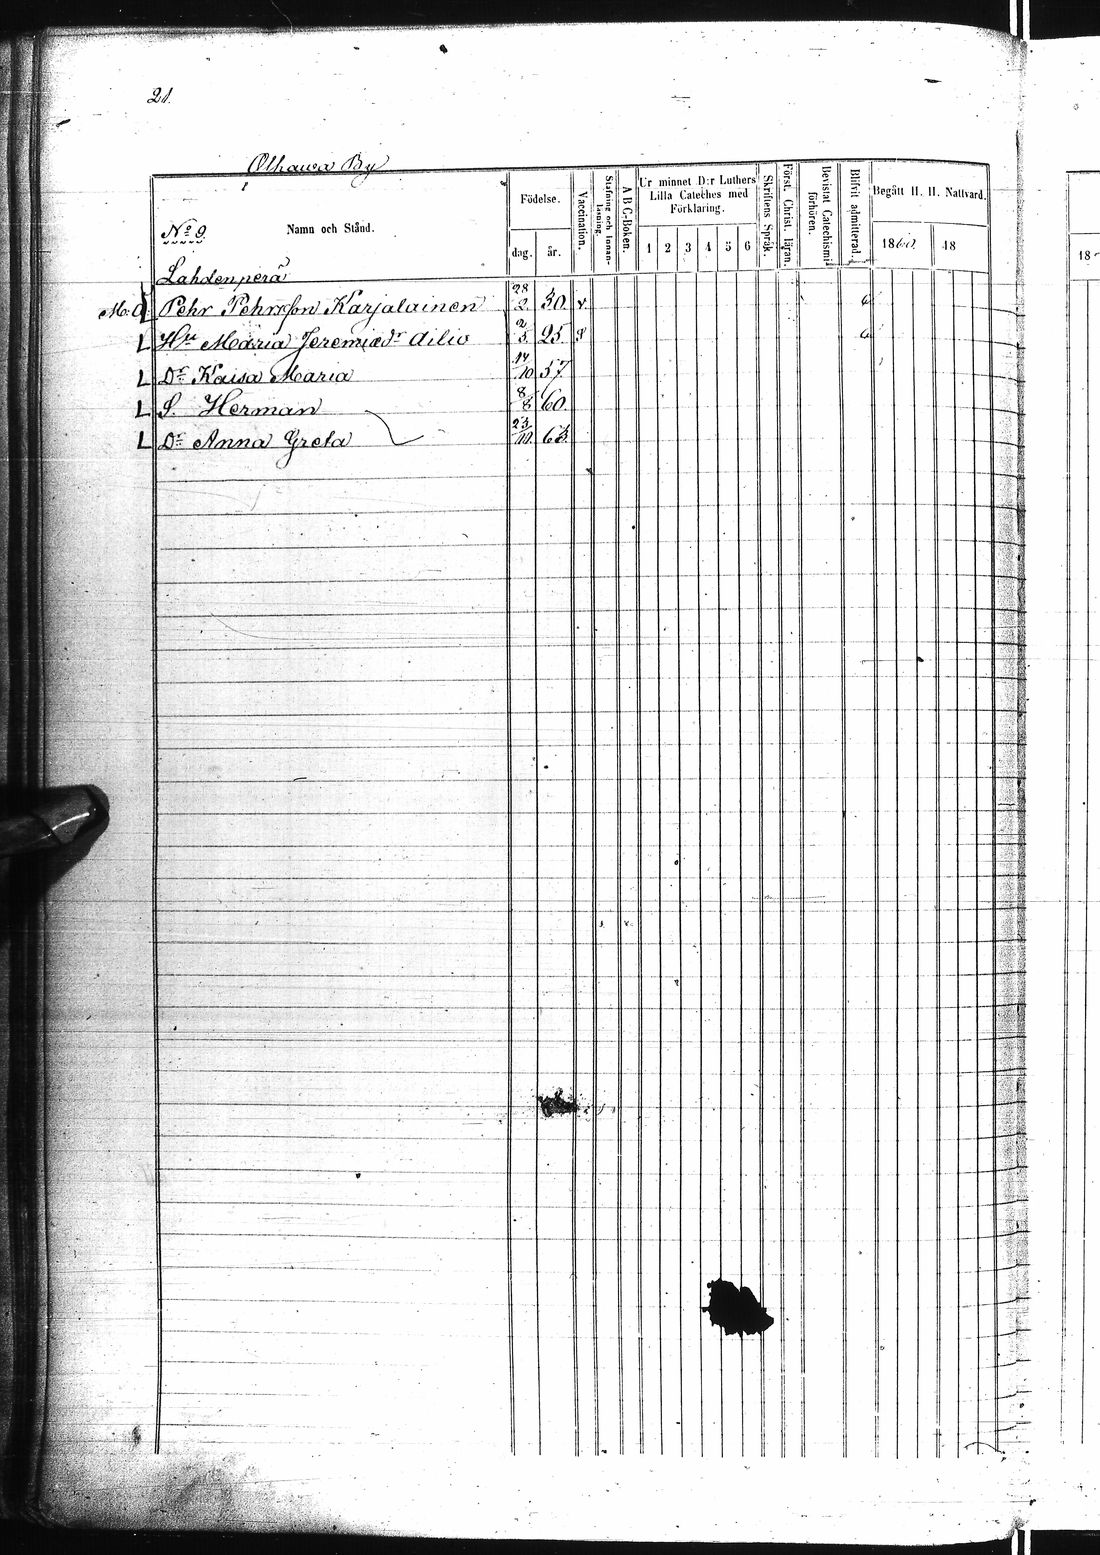 21.
Olhawa By
No 9.
Namn och Stånd.
Födelse.
dag.
år.
Vaccination.
Stafning och Innan-läsning.
A B C-Boken.
Ur minnet D:r Luthers Lilla Cateches med Förklaring.
1 2 3 4 5 6
Skriftens Språk.
Först. Christ. läran.
Bevistat Catechismi förhören.
Blifvit admitterad.
Begått H. H. Nattvard.
1860.
18
18
Lahdenperä
Pehr Pehrsson Karjalainen 28/2 30. v
L Hu Maria Jeremiædr Ailio 2/5 25. s
L Dr Kaisa Maria 14/10 57
L S. Herman 8/8 60.
L Dr Anna Greta 23/10 63